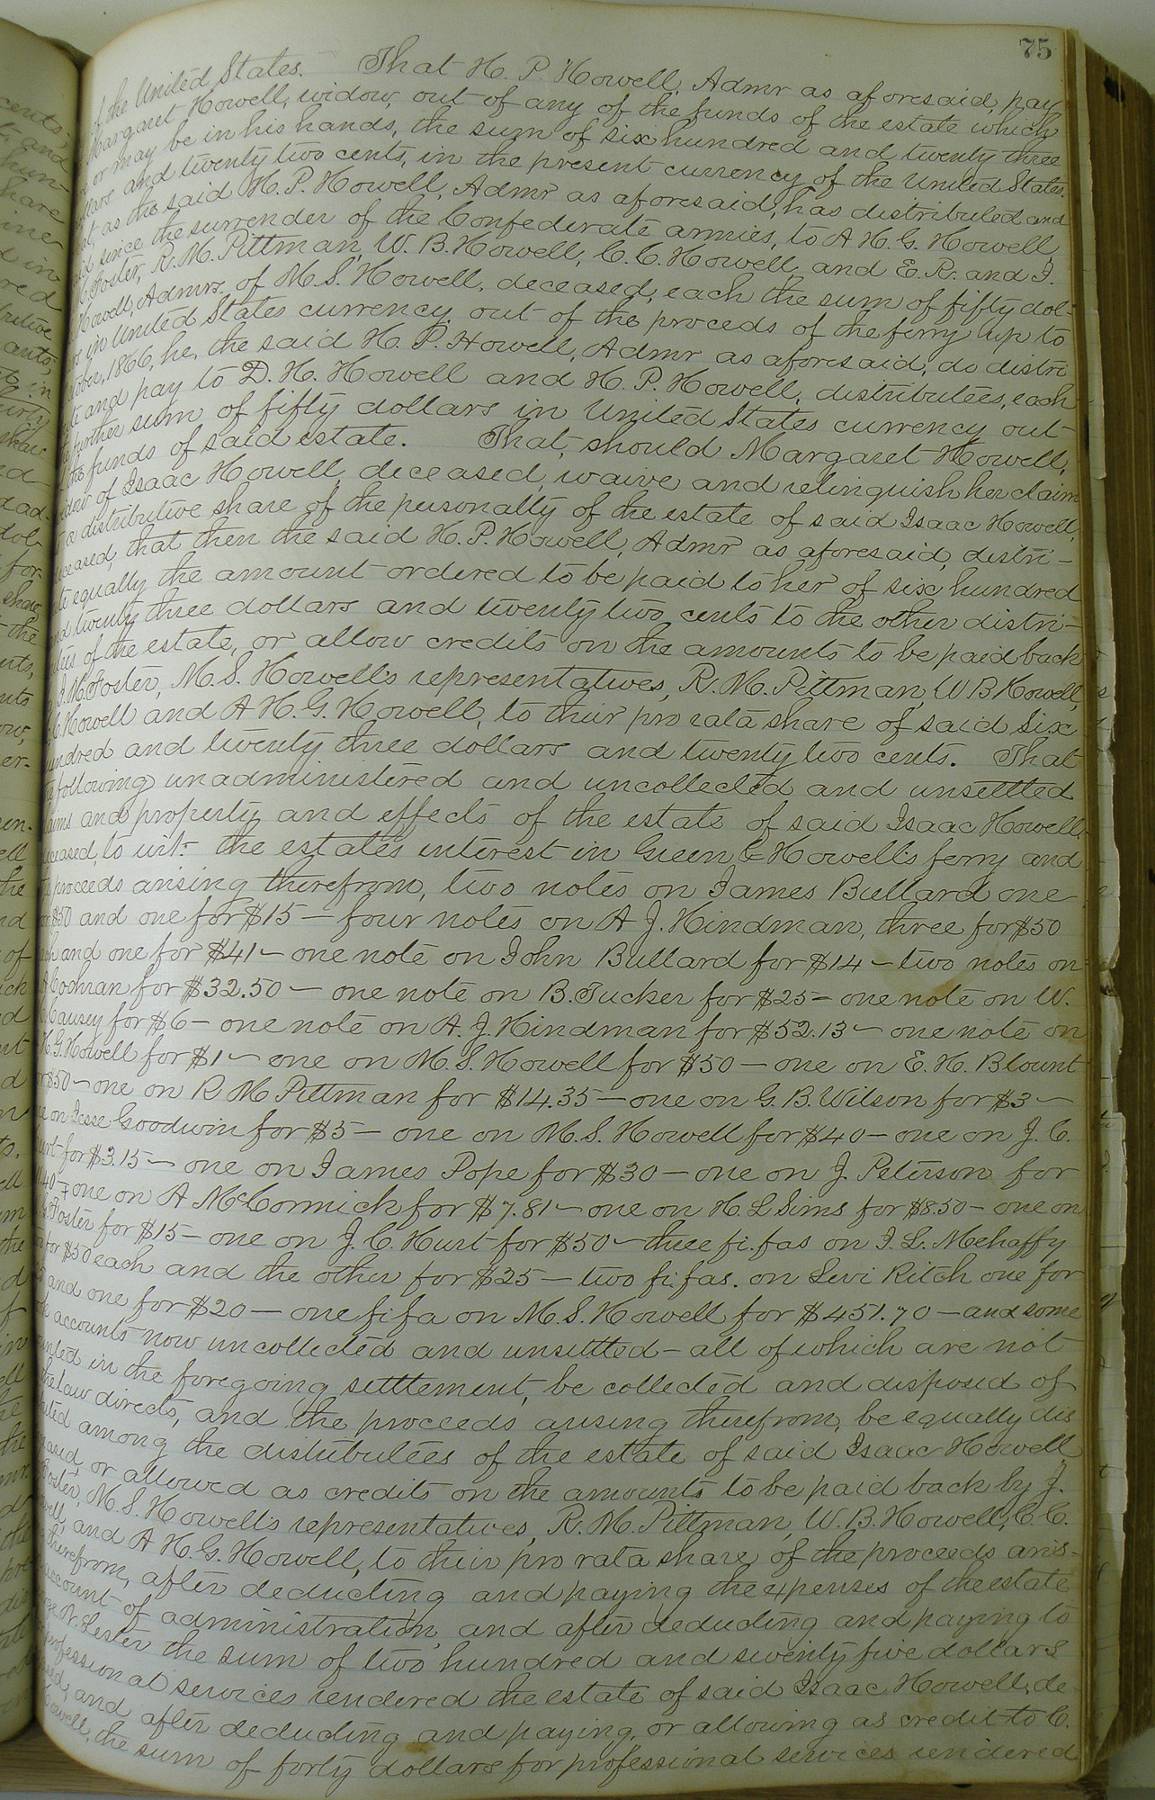 75
of the United States. That H. P. Howell, Admr as aforesaid, pay
Margaret Howell, widow, out of any of the funds of the estate which
or may be in his hands, the sum of six hundred and twenty three
dollars and twenty two cents, in the present currency of the United States.
as the said H. P. Howell, Admr as aforesaid, has distributed and
since the surrender of the Confederate armies, to A. H. G. Howell,
Foster, R. M. Pittman, W. B. Howell, C. C. Howell, and E. R. and J.
Howell, Admrs. of M. S. Howell, deceased, each the sum of fifty dol-
in United States currency, out of the proceds of the ferry up to
1866, he, the said H. P. Howell, Admr as aforesaid, do distri
and pay to D. H. Howell and H. P. Howell, distributees, each
further sum of fifty dollars in United States currency out
funds of said estate. That, should Margaret Howell,
of Isaac Howell, deceased, waive and relinquish her claim
distributive share of the personalty of the estate of said Isaac Howell,
deceased, that then the said H. P. Howell, Admr as aforesaid, distri-
equally the amount ordered to be paid to her of six hundred
and twenty three dollars and twenty two cents to the other distri-
of the estate, or allow credits on the amounts to be paid back
Foster, M. S. Howell's representatives, R. M. Pittman, W B Howell,
Howell and A H. G. Howell, to their pro rata share of said six
hundred and twenty three dollars and twenty two cents. That
following unadministered and uncollected and unsettled
claims and property and effects of the estate of said Isaac Howell,
deceased, to wit:- the estates interest in Green & Howell's ferry and
proceeds arising therefrom, two notes on James Bullard one
$50 and one for $15 – four notes on A J. Hindman, three for $50
and one for $41 – one note on John Bullard for $14 – two notes on
Cochran for $32.50 – one note on B. Tucker for $25 – one note on W.
Causey for $6 – one note on A. J. Hindman for $52.13 – one note on
H. G. Howell for $1 – one on M. S. Howell for $50 – one on E. H. Blount
– one on R M Pittman for $14.35 – one on G. B. Wilson for $3 –
on Jesse Goodwin for $5 – one on M. S. Howell for $40 – one on J. C.
for $3.15 – one on James Pope for $30 – one on J. Peterson for
– one on A McCormick for $7.81 – one on H. L Sims for $8.50 – one on
Foster for $15 – one on J. C. Hurt for $50 – three fi. fas on J. L. Mehaffy
for $50 each and the other for $25 – two fi. fas. on Levi Ritch one for
and one for $20 – one fi fa on M. S. Howell for $451.70 – and some
accounts now uncollected and unsettled – all of which are not
in the foregoing settlement, be collected and disposed of
the law directs, and the proceeds arising therefrom, be equally dis
among the distributees of the estate of said Isaac Howell
or allowed as credits on the amounts to be paid back by J.
Foster, M. S. Howell's representatives, R. M. Pittman, W. B. Howell, C. C.
and A H. G. Howell, to their pro rata share of the proceeds aris-
therefrom, after deducting and paying the expenses of the estate
account of administration, and after deducting and paying to
N. Lester the sum of two hundred and seventy five dollars
professional services rendered the estate of said Isaac Howell, de-
and after deducting and paying, or allowing as credit to C.
Howell, the sum of forty dollars for professional services rendered